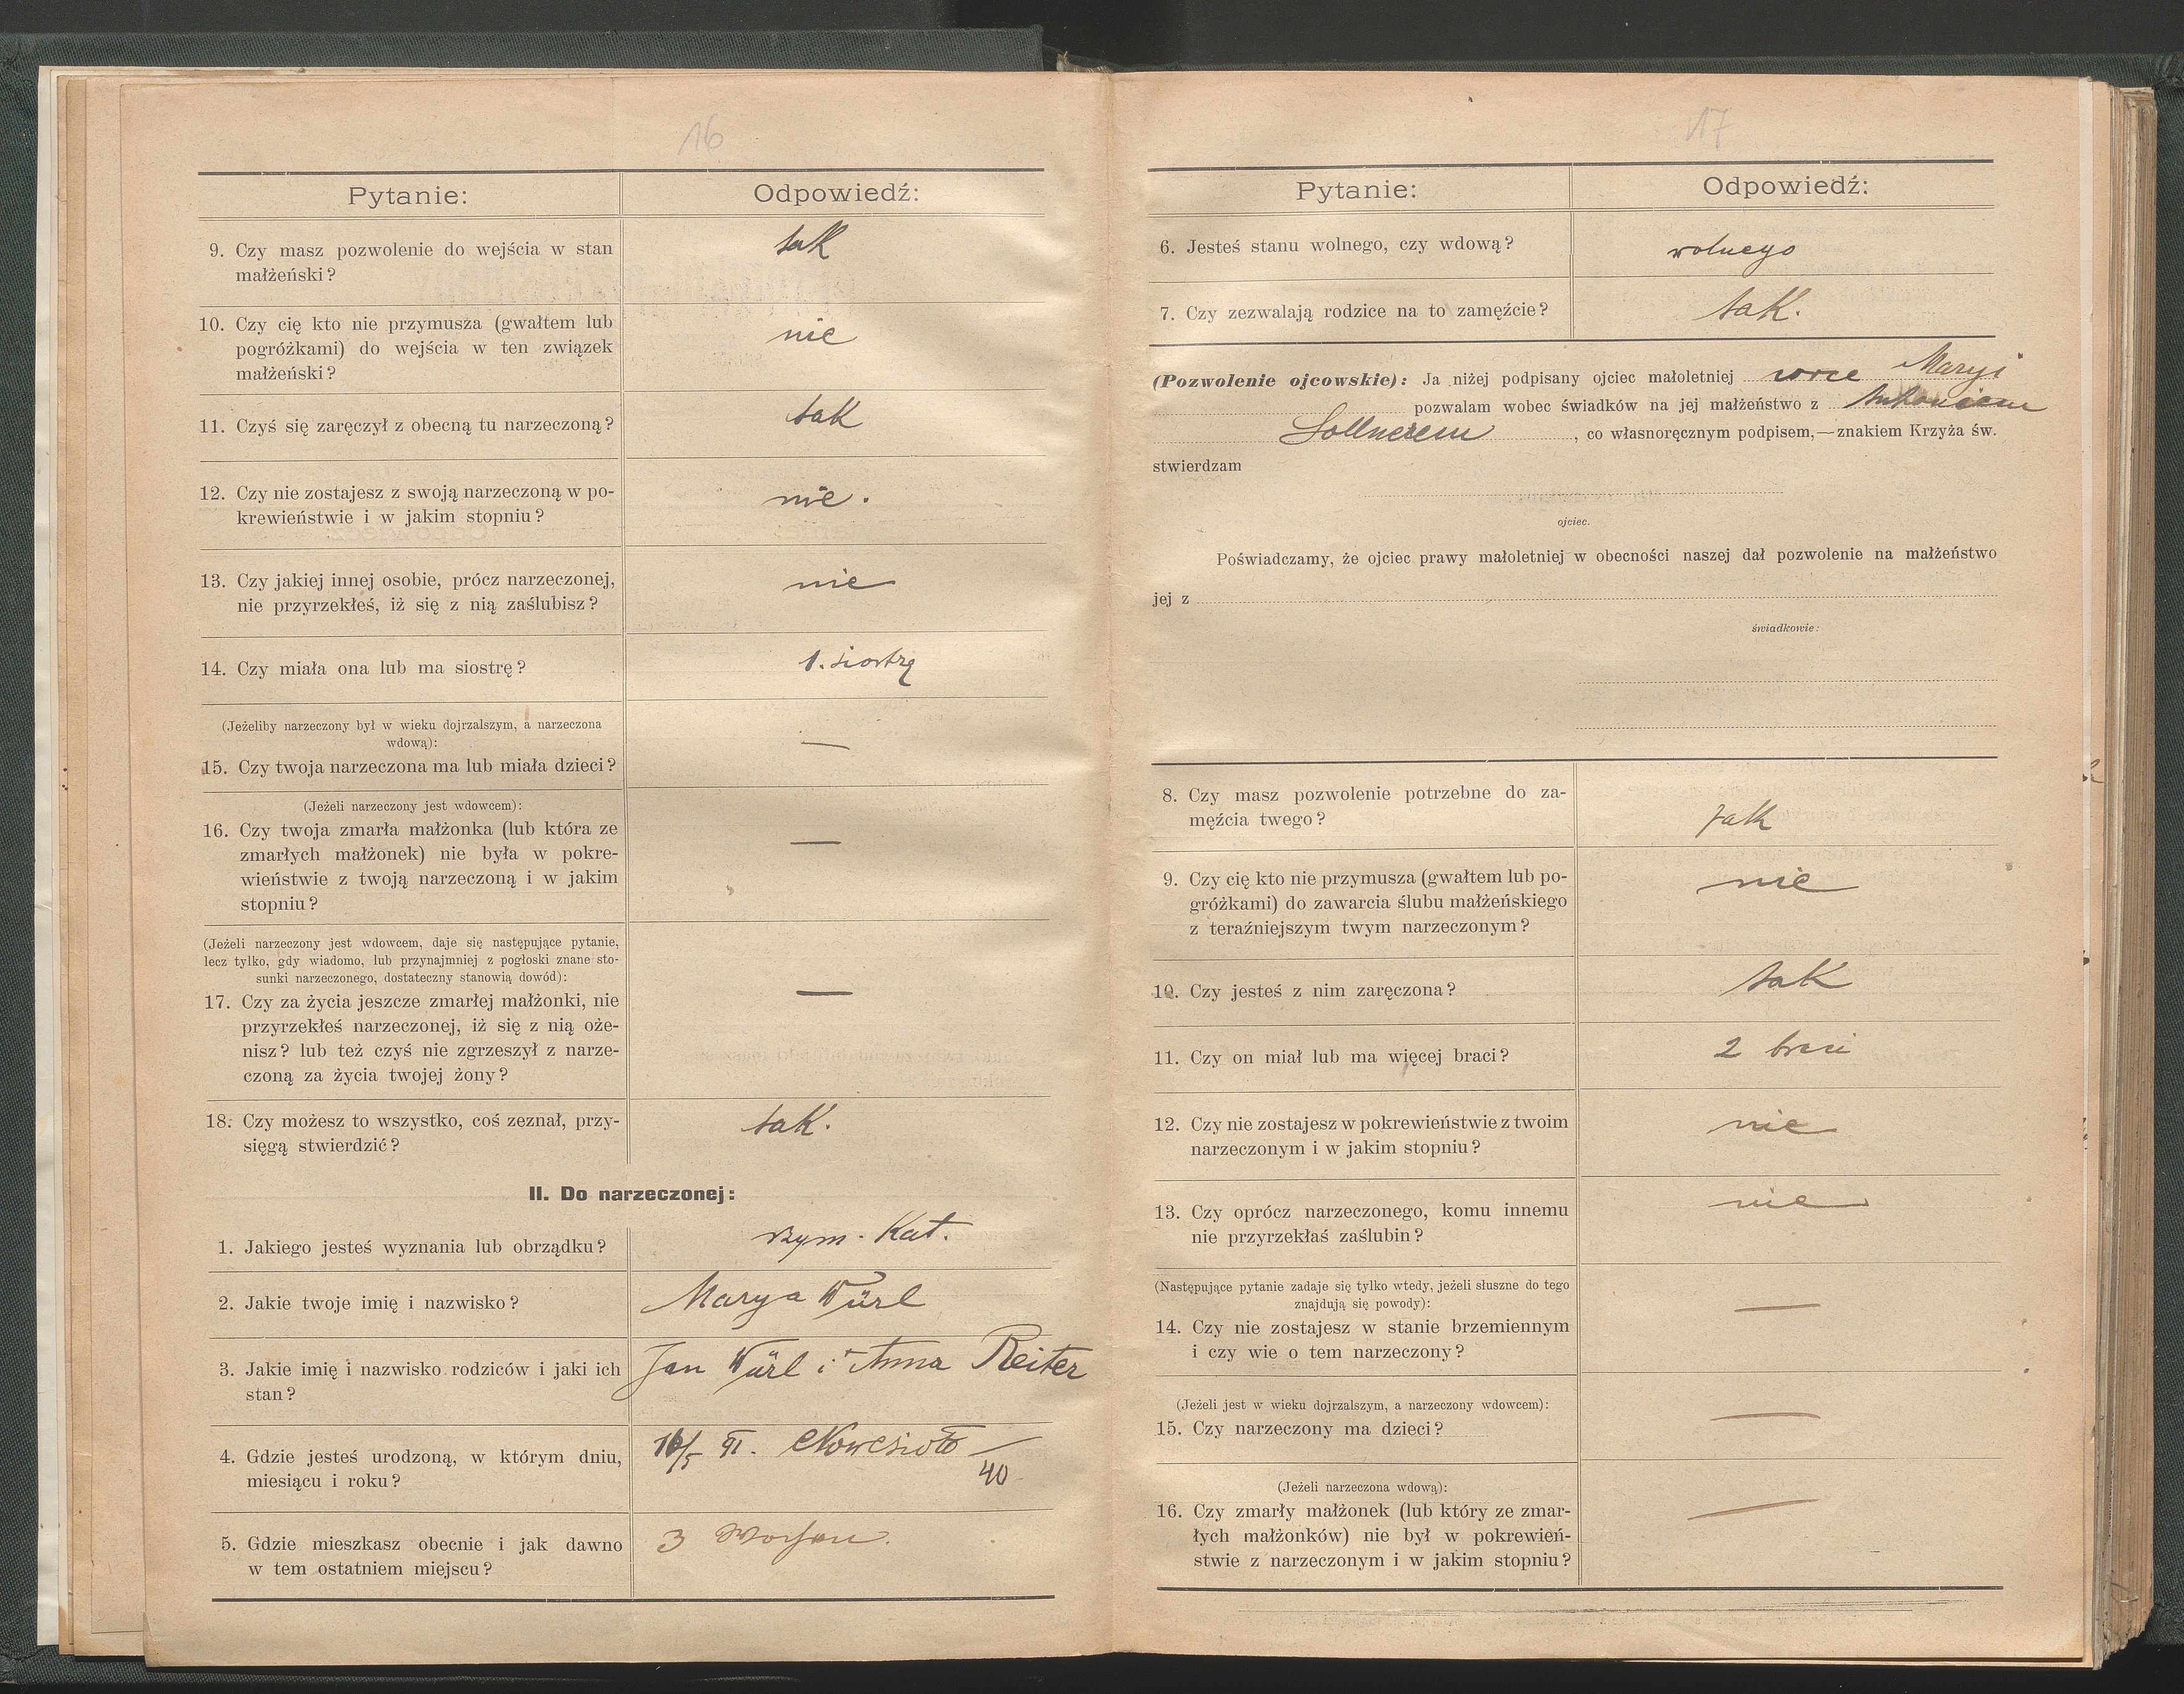 16
Pytanie:
Odpowiedź:
9. Czy masz pozwolenie do wejścia w stan
małżeński?
tak
10. Czy cię kto nie przymusza (gwałtem lub
pogróżkami) do wejścia w ten związek
małżeński?
nie
11. Czyś się zaręczył z obecną tu narzeczoną?
tak
12. Czy nie zostajesz z swoją narzeczoną w po-
krewieństwie i w jakim stopniu?
nie.
13. Czy jakiej innej osobie, prócz narzeczonej,
nie przyrzekłeś, iż się z nią zaślubisz?
nie
14. Czy miała ona lub ma siostrę?
1. siostrę
(Jeżeliby narzeczony był w wieku dojrzalszym, a narzeczona
wdową):
15. Czy twoja narzeczona ma lub miała dzieci?
—
(Jeżeli narzeczony jest wdowcem):
16. Czy twoja zmarła małżonka (lub która ze
zmarłych małżonek) nie była w pokre-
wieństwie z twoją narzeczoną i w jakim
stopniu?
—
(Jeżeli narzeczony jest wdowcem, daje się następujące pytanie,
lecz tylko, gdy wiadomo, lub przynajmniej z pogłoski znane sto-
sunki narzeczonego, dostateczny stanowią dowód):
17. Czy za życia jeszcze zmarłej małżonki, nie
przyrzekłeś narzeczonej, iż się z nią oże-
nisz? lub też czyś nie zgrzeszył z narze-
czoną za życia twojej żony?
—
18. Czy możesz to wszystko, coś zeznał, przy-
sięgą stwierdzić?
tak.
II. Do narzeczonej:
1. Jakiego jesteś wyznania lub obrządku?
rzym. Kat.
2. Jakie twoje imię i nazwisko?
Marya Würl
3. Jakie imię i nazwisko rodziców i jaki ich
stan?
Jan Würl i Anna Reiter
4. Gdzie jesteś urodzoną, w którym dniu,
miesiącu i roku?
16/5 91. Nowesioło
40
5. Gdzie mieszkasz obecnie i jak dawno
w tem ostatniem miejscu?
3 Wochen.
17
Pytanie:
Odpowiedź:
6. Jesteś stanu wolnego, czy wdową?
wolnego
7. Czy zezwalają rodzice na to zamęźcie?
tak.
(Pozwolenie ojcowskie): Ja niżej podpisany ojciec małoletniej corce Maryi
pozwalam wobec świadków na jej małżeństwo z Antoniem
Sollnerem, co własnoręcznym podpisem,—znakiem Krzyża św.
stwierdzam
ojciec.
Poświadczamy, że ojciec prawy małoletniej w obecności naszej dał pozwolenie na małżeństwo
jej z
świadkowie:
8. Czy masz pozwolenie potrzebne do za-
męźcia twego?
Tak
9. Czy cię kto nie przymusza (gwałtem lub po-
gróżkami) do zawarcia ślubu małżeńskiego
z teraźniejszym twym narzeczonym?
nie
10. Czy jesteś z nim zaręczona?
tak
11. Czy on miał lub ma więcej braci?
2 braci
12. Czy nie zostajesz w pokrewieństwie z twoim
narzeczonym i w jakim stopniu?
nie
13. Czy oprócz narzeczonego, komu innemu
nie przyrzekłaś zaślubin?
nie
(Następujące pytanie zadaje się tylko wtedy, jeżeli słuszne do tego
znajdują się powody):
14. Czy nie zostajesz w stanie brzemiennym
i czy wie o tem narzeczony?
—
(Jeżeli jest w wieku dojrzalszym, a narzeczony wdowcem):
15. Czy narzeczony ma dzieci?
—
(Jeżeli narzeczona wdową):
16. Czy zmarły małżonek (lub który ze zmar-
łych małżonków) nie był w pokrewień-
stwie z narzeczonym i w jakim stopniu?
—